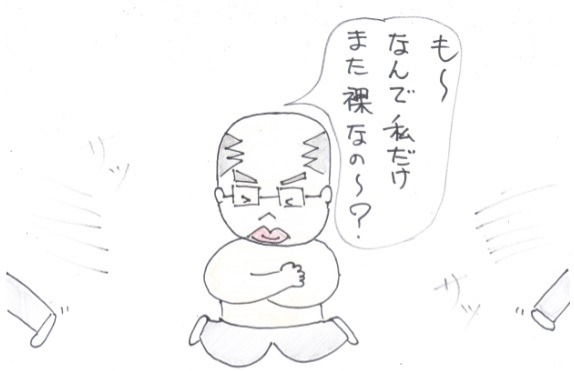 も〜
なんで私だけ
また裸なの〜?
サッ
サッ